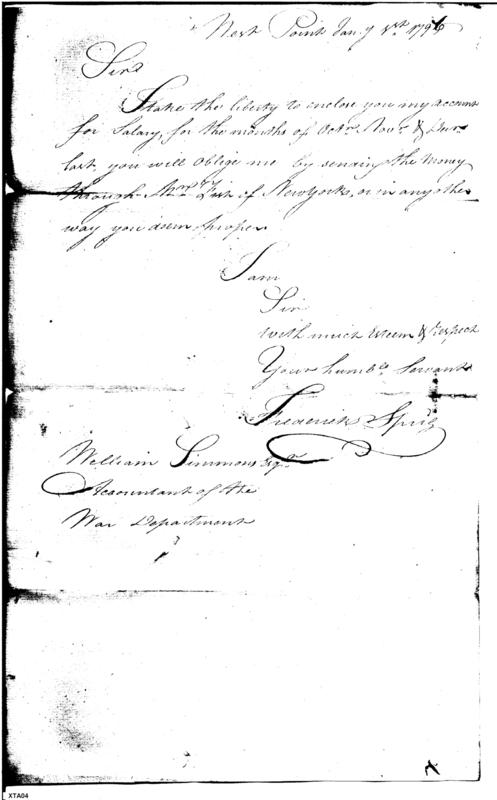 West Point Jany 1st 1796
Sir
I take the liberty to enclose you my account
for Salary, for the months of Octr. Novr. & Decr.
last, you will oblige me by sending the Money
through of New York, or in any other
way you deem proper
I am
Sir
with much esteem & respect
Your humble Servant
Frederick
William Simmons Esqr.
Accountant of the
War Department
XTA04